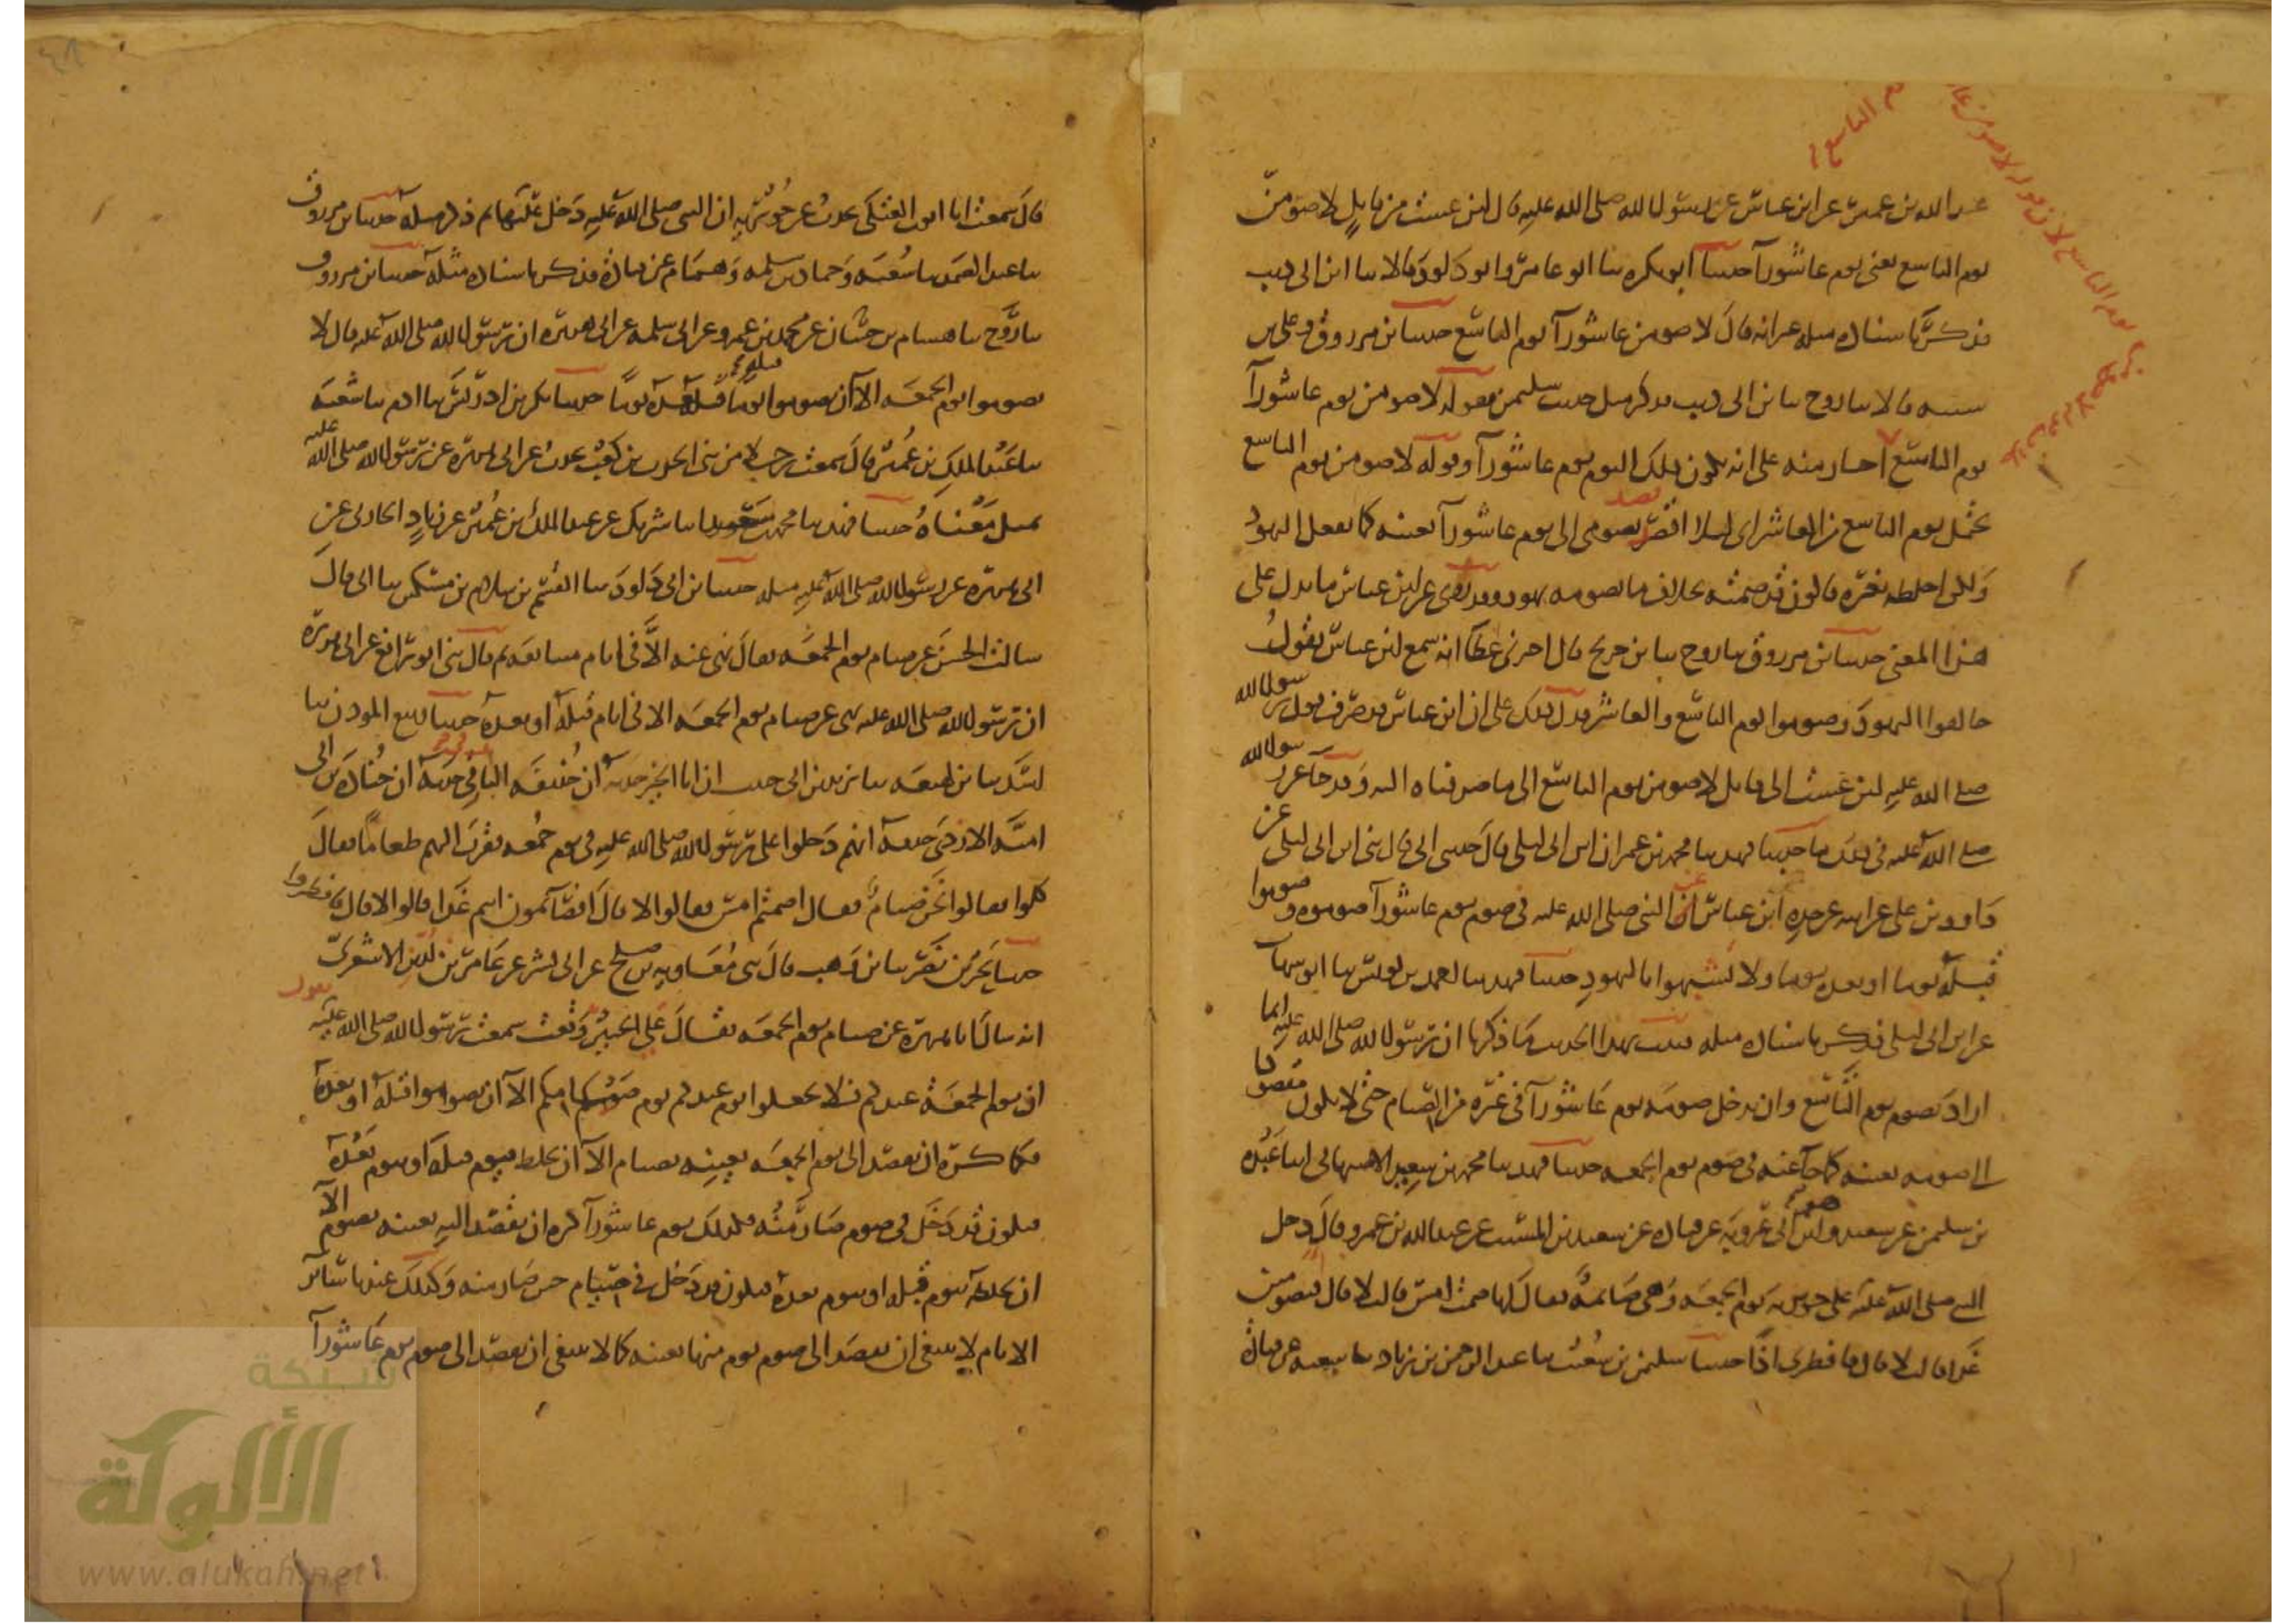 عبد الله بن عمير عن ابن عباس عن رسول الله صلى الله عليه قال لئن عشت من قابل لاصومن
يوم التاسع يعنى يوم عاشورآ حدسا ابو بكره سا ابو عامر وابو داود قالا سا ابن ابى ديب
فذكر باسناده مثله غير انه قال لاصومن عاشورآ يوم التاسع حدسا بن مرزوق وعلى بن
سىىه قالا سا روح سا بن ابى ديب فذكر مثل حديث سليمن فقوله لاصومن يوم عاشورآ
يوم التاسع اخبار منه على انه يكون ذلك اليوم يوم عاشورآ وقوله لاصومن يوم التاسع
يحتمل يوم التاسع مع العاشر اى ليلا اقصد بصومى الى يوم عاشورآ بعينه كما يفعل اليهود
ولكن اخلطه بغيره فاكون قد صمته بخلاف ما تصومه يهود وقد روى عن ابن عباس ما يدل على
هذا المعنى حدسا بن مرزوق سا روح سا بن جريج قال اخبرنى عطآ انه سمع ابن عباس يقول
خالفوا اليهود وصوموا يوم التاسع والعاشر فدل ذلك على ان ابن عباس قد صرف قول رسول الله
صلى الله عليه لئن عشت الى قابل لاصومن يوم التاسع الى ما صرفناه اليه وقد جآ عن رسول الله
صلى الله عليه فى ذلك ما حدسا فهد سا محمد بن عمران ابن ابى ليلى قال حدسى ابى قال سى ابن ابى ليلى عن
داود بن على عن ابيه عن جده ابن عباس عن النبى صلى الله عليه فى صوم يوم عاشورآ صوموه وصوموا
قبله يوما او بعده يوما ولا تشبهوا باليهود حدسا فهد سا احمد بن يونس سا ابو شهاب
عن ابن ابى ليلى فذكر باسناده مثله فثبت بهذا الحديث ما ذكرنا ان رسول الله صلى الله عليه انما
اراد بصوم يوم التاسع وان يدخل صومه يوم عاشورآ فى غيره من الصيام حتى لا يكون مقصودا
الى صومه بعينه كما جآ عنه فى صوم يوم الجمعه حدسا فهد سا محمد بن سعيد الاصبهانى انا عبده
بن سليمن عن سعيد هو ابن ابى عروبه عن قتاده عن سعيد بن المسيب عن عبد الله بن عمرو قال دخل
النبى صلى الله عليه على جويريه يوم الجمعه وهى صائمه فقال لها صمت امس قالت لا قال فتصومين
غدا قالت لا قال فافطرى اذا حدسا سليمن بن شعيب سا عبد الرحمن بن زياد سا شعبه عن قتاده
قال سمعت ابا ايوب العتكى يحدث عن جويريه ان النبى صلى الله عليه دخل عليها ثم ذكر مثله حدسا بن مرزوق
سا عبد الصمد سا شعبه وحماد بن سلمه وهمام عن قتاده فذكر باسناده مثله حدسا بن مرزوق
سا روح سا هشام بن حسان عن محمد بن عمرو عن ابى سلمه عن ابى هريره ان رسول الله صلى الله عليه قال لا
تصوموا يوم الجمعه الا ان تصوموا قبله يوما او بعده يوما حدسا بكر بن ادريس سا ادم سا شعبه
سا عبد الملك بن عمير قال سمعت رجلا من بنى الحرث بن كعب يحدث عن ابى هريره عن رسول الله صلى الله عليه
بمثل معناه حدسا فهد سا محمد بن سعيد سا شريك عن عبد الملك بن عمير عن زياد الحارثى عن
ابى هريره عن رسول الله صلى الله عليه مثله حدسا بن ابى داود سا القسم بن سلام بن مسكين سا ابى قال
سالت الحسن عن صيام يوم الجمعه فقال نهى عنه الا فى ايام متتابعه ثم قال سى ابو رافع عن ابى هريره
ان رسول الله صلى الله عليه نهى عن صيام يوم الجمعه الا فى ايام قبله او بعده حدسا ربيع الموذن سا
اسد سا بن لهيعه سا يزيد بن ابى حبيب ان ابا الخير حدثه ان حذيفه البارقى حدثه ان جناده بن ابى
اميه الازدى حدثه انهم دخلوا على رسول الله صلى الله عليه فى يوم جمعه فقرب اليهم طعاما فقال
كلوا فقالوا نحن صيام فقال اصمتم امس فقالوا لا قال افصآئمون انتم غدا قالوا لا قال فافطروا
حدسا بحر بن نصر سا بن وهب قال سى معاويه بن صلح عن ابى بشر عن عامر بن لدين الاشعرى
انه سال ابا هريره عن صيام يوم الجمعه فقال على الخبير وقعت سمعت رسول الله صلى الله عليه يقول
ان يوم الجمعه عيدكم فلا تجعلوا يوم عيدكم يوم صيامكم الا ان تصوموا قبله او بعده
فكما كره ان يقصد الى يوم الجمعه بعينه بصيام الا ان يخلط بيوم قبله او بيوم بعده
فيكون قد دخل فى صوم صار منه فكذلك يوم عاشورآ كره ان يقصد اليه بعينه بصوم الا
ان يخلطه بيوم قبله او بيوم بعده فيكون قد دخل فى صيام حتى صار منه وكذلك عندنا سائر
الايام لا ينبغى ان يقصد الى صوم يوم منها بعينه كما لا ينبغى ان يقصد الى صوم يوم عاشورآ
شبكة
الألوكة
www.alukah.net